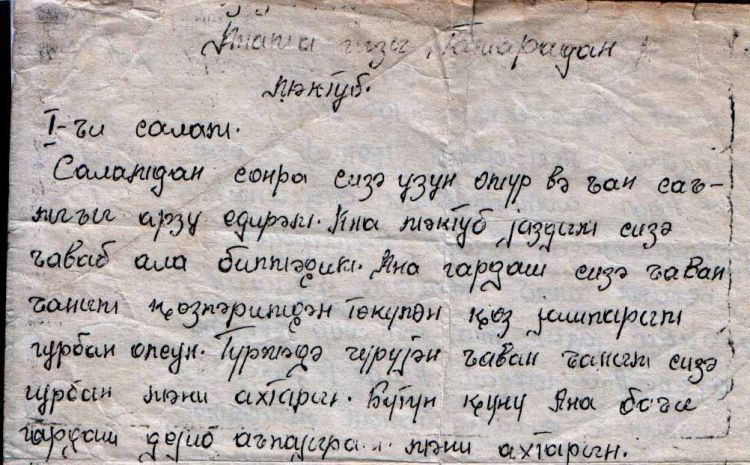 гызы Тамарадан
мәктуб.
I-ҹи салам.
Саламдан сонра сизә узун өмүр вә ҹан сағ-
лығы арзу едирәм. Ана мәктуб јаздым сизә
ҹаваб ала билмәдим. Ана гардаш сизә ҹаван
ҹаным ҝөзләримдән төкүлән ҝөз јашларым
гурбан олсун. Түрмәдә чүрүјән ҹаван ҹаным сизә
гурбан мәни ахтарын. Бүтүн ҝүнү Ана баҹы
гардаш дејиб ағлајырам мәни ахтарын.